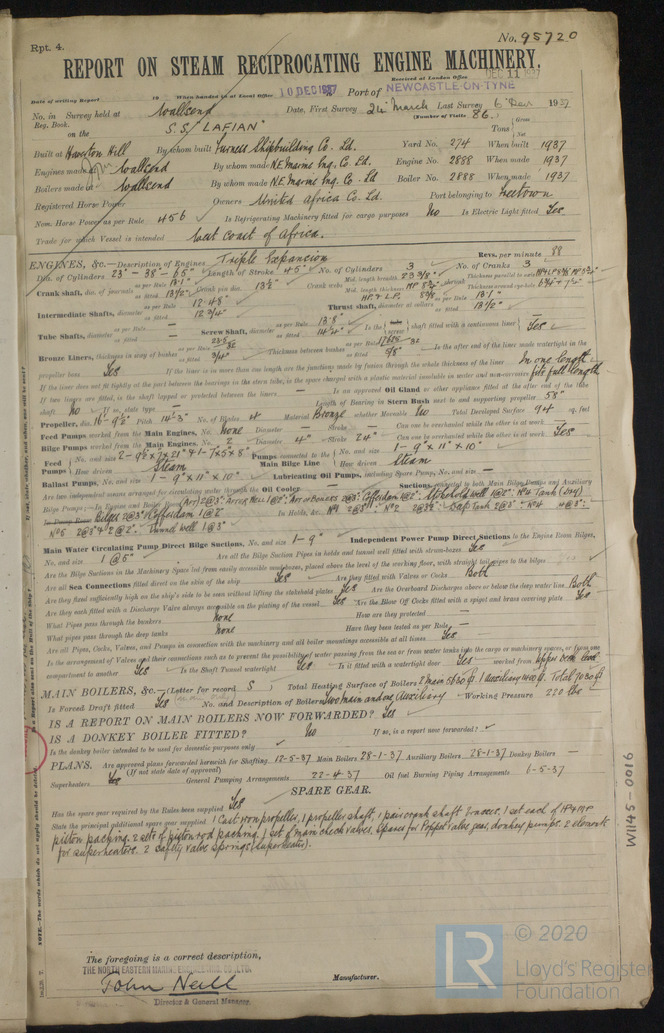 Rpt. 4.
No. 95720
REPORT ON STEAM RECIPROCATING ENGINE MACHINERY.
Received at London Office DEC 11 1937
Date of writing Report 19 When handed in at Local Office 10 DEC 1937 Port of NEWCASTLE-ON-TYNE
No. in Survey held at Wallsend Date, First Survey 24 March Last Survey 6 Dec 1937
Reg. Book. (Number of Visits 86.)
on the S.S. "LAFIAN" Tons Gross Net
Built at Haverton Hill By whom built Furness Shipbuilding Co. Ltd. Yard No. 274 When built 1937
Engines made at Wallsend By whom made N.E. Marine Eng. Co. Ltd. Engine No. 2888 When made 1937
Boilers made at Wallsend By whom made N.E. Marine Eng. Co. Ltd Boiler No. 2888 When made 1937
Registered Horse Power Owners United Africa Co. Ltd. Port belonging to Freetown
Nom. Horse Power as per Rule 456 Is Refrigerating Machinery fitted for cargo purposes No Is Electric Light fitted Yes
Trade for which Vessel is intended West Coast of Africa.
ENGINES, &c.—Description of Engines Triple Expansion Revs. per minute 88
Dia. of Cylinders 23" - 38" - 65" Length of Stroke 45" No. of Cylinders 3 No. of Cranks 3
Crank shaft, dia. of journals as per Rule 13.1" as fitted 13½" Crank pin dia. 13½" Crank webs Mid. length breadth 23 3/8" Mid. length thickness
Intermediate Shafts, diameter as per Rule 12.48" as fitted 12¾" Thrust shaft, diameter at collars as per Rule 13.1" as fitted 13½"
Tube Shafts, diameter as per Rule — as fitted — Screw Shaft, diameter as per Rule 13.8" as fitted 14¼" Is the screw shaft fitted with a continuous liner Yes
Bronze Liners, thickness in way of bushes as per Rule as fitted 3/4" Thickness between bushes as per Rule as fitted 5/8" Is the after end of the liner made watertight in the
propeller boss Yes If the liner is in more than one length are the junctions made by fusion through the whole thickness of the liner In one length
If the liner does not fit tightly at the part between the bearings in the stern tube, is the space charged with a plastic material insoluble in water and non-corrosive fits full length
If two liners are fitted, is the shaft lapped or protected between the liners — Is an approved Oil Gland or other appliance fitted at the after end of the tube
shaft No If so, state type — Length of Bearing in Stern Bush next to and supporting propeller 58"
Propeller, dia. 16'-9½" Pitch No. of Blades 4 Material Bronze whether Moveable No Total Developed Surface 94 sq. feet
Feed Pumps worked from the Main Engines, No. None Diameter — Stroke — Can one be overhauled while the other is at work —
Bilge Pumps worked from the Main Engines, No. 2 Diameter 4" Stroke 24" Can one be overhauled while the other is at work Yes
Feed Pumps No. and size 2-9½"x7"x21" & 1-7"x5"x8" How driven Steam Pumps connected to the Main Bilge Line No. and size 1-9"x11"x10" How driven Steam
Ballast Pumps, No. and size 1-9"x11"x10" Lubricating Oil Pumps, including Spare Pump, No. and size —
Are two independent means arranged for circulating water through the Oil Cooler Suctions, connected to both Main Bilge Pumps and Auxiliary
Bilge Pumps:—In Engine and Boiler Room
In Holds, &c.
No 5 2@3" Tunnel well 1@3"
Main Water Circulating Pump Direct Bilge Suctions, No. and size 1-9" Independent Power Pump Direct Suctions to the Engine Room Bilges,
No. and size 1@5" Are all the Bilge Suction Pipes in holds and tunnel well fitted with strum-boxes Yes
Are the Bilge Suctions in the Machinery Space led from easily accessible mud-boxes, placed above the level of the working floor, with straight tail pipes to the bilges
Are all Sea Connections fitted direct on the skin of the ship Yes Are they fitted with Valves or Cocks Both
Are they fixed sufficiently high on the ship's side to be seen without lifting the stokehold plates Yes Are the Overboard Discharges above or below the deep water line Both
Are they each fitted with a Discharge Valve always accessible on the plating of the vessel Yes Are the Blow Off Cocks fitted with a spigot and brass covering plate Yes
What Pipes pass through the bunkers None How are they protected —
What pipes pass through the deep tanks None Have they been tested as per Rule —
Are all Pipes, Cocks, Valves, and Pumps in connection with the machinery and all boiler mountings accessible at all times Yes
Is the arrangement of Valves and their connections such as to prevent the possibility of water passing from the sea or from water tanks into the cargo or machinery spaces, or from one
compartment to another Yes Is the Shaft Tunnel watertight Yes Is it fitted with a watertight door Yes worked from Upper deck level
MAIN BOILERS, &c.—(Letter for record S) Total Heating Surface of Boilers 2 Main 5630 1 Auxiliary 1400 Total 7030
Is Forced Draft fitted Yes No. and Description of Boilers Two main and one Auxiliary Working Pressure 220 lbs
IS A REPORT ON MAIN BOILERS NOW FORWARDED? Yes
IS A DONKEY BOILER FITTED? No If so, is a report now forwarded?
Is the donkey boiler intended to be used for domestic purposes only
PLANS. Are approved plans forwarded herewith for Shafting 12-5-37 Main Boilers 28-1-37 Auxiliary Boilers 28-1-37 Donkey Boilers —
(If not state date of approval)
Superheaters Yes General Pumping Arrangements 22-4-37 Oil fuel Burning Piping Arrangements 6-5-37
SPARE GEAR.
Has the spare gear required by the Rules been supplied Yes
State the principal additional spare gear supplied 1 Cast iron propeller, 1 propeller shaft, 1 pair crank shaft brasses, 1 set each of HP & MP
piston packing, 2 sets of piston rod packing, 1 set of main check valves, spares for Poppet valve gear, donkey pumps. 2 elements
for superheaters. 2 safety valve springs (superheater).
The foregoing is a correct description,
THE NORTH EASTERN MARINE ENGINEERING CO., LTD.
John Neill Manufacturer.
Director & General Manager.
W1145-0016
NOTE.—The words which do not apply should be deleted.
LR
© 2020
Lloyd's Register
Foundation